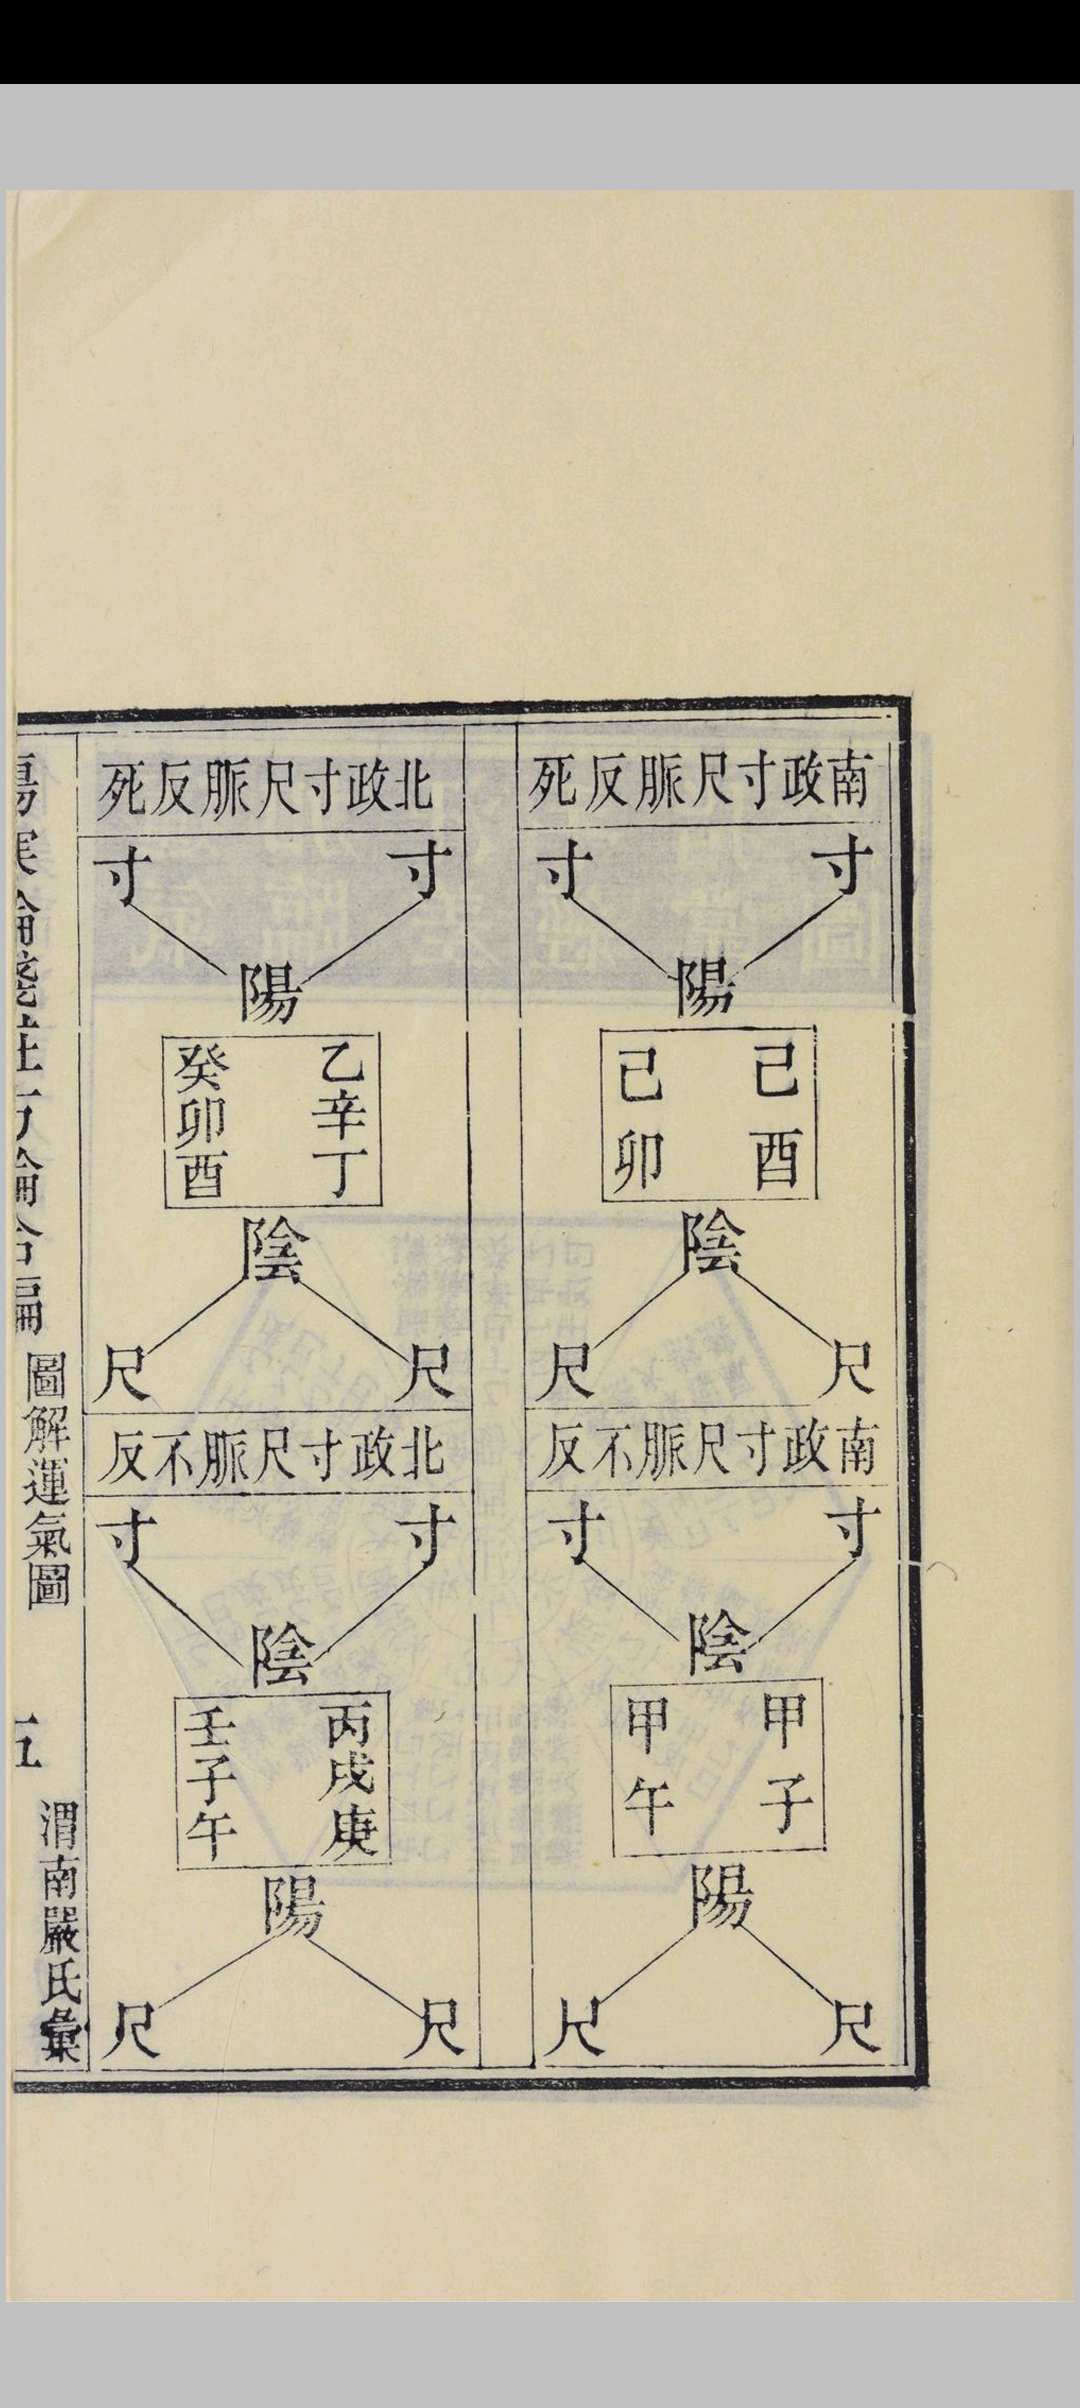 南政寸尺脈反死
寸 寸
陽
己酉 己卯
陰
尺 尺
南政寸尺脈不反
寸 寸
陰
甲子 甲午
陽
尺 尺
北政寸尺脈反死
寸 寸
陽
乙辛丁 癸卯酉
陰
尺 尺
北政寸尺脈不反
寸 寸
陰
丙戊庚 壬子午
陽
尺 尺
傷寒論淺註方論合編 圖解運氣圖 五 渭南嚴氏彙